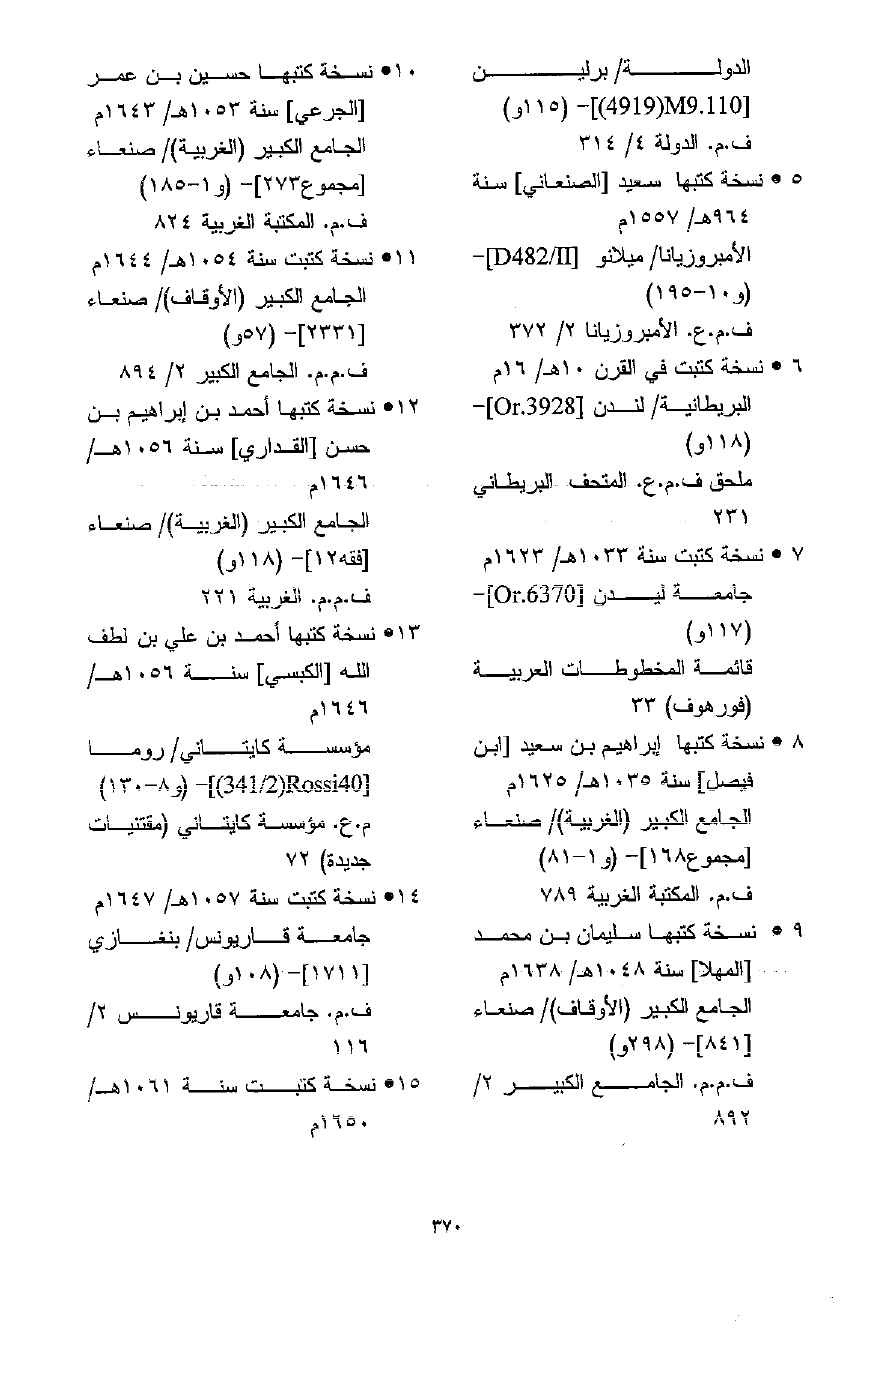 الدولة/ برلين
[M9.110(4919)]- (١١٥و)
ف.م. الدولة ٤/ ٣١٤
٥ • نسخة كتبها سعيد [الصنعاني] سنة
٩٦٤هـ/ ١٥٥٧م
الأمبروزيانا/ ميلانو [D482/II]-
(و١٠-١٩٥)
ف.م.ع. الأمبروزيانا ٢/ ٣٧٢
٦ • نسخة كتبت في القرن ١٠هـ/ ١٦م
البريطانية/ لندن [Or.3928]-
(١١٨و)
ملحق ف.م.ع. المتحف البريطاني
٢٣١
٧ • نسخة كتبت سنة ١٠٣٣هـ/ ١٦٢٣م
جامعة ليدن [Or.6370]-
(١١٧و)
قائمة المخطوطات العربية
(فورهوف) ٣٣
٨ • نسخة كتبها إبراهيم بن سعيد [ابن
فيصل] سنة ١٠٣٥هـ/ ١٦٢٥م
الجامع الكبير (الغربية)/ صنعاء
[مجموع١٦٨]- (و١-٨١)
ف.م. المكتبة الغربية ٧٨٩
٩ • نسخة كتبها سليمان بن محمد
[المهلا] سنة ١٠٤٨هـ/ ١٦٣٨م
الجامع الكبير (الأوقاف)/ صنعاء
[٨٤١]- (٢٩٨و)
ف.م.م. الجامع الكبير ٢/
٨٩٢
١٠• نسخة كتبها حسين بن عمر
[الجرعي] سنة ١٠٥٣هـ/ ١٦٤٣م
الجامع الكبير (الغربية)/ صنعاء
[مجموع٢٧٣]- (و١-١٨٥)
ف.م. المكتبة الغربية ٨٢٤
١١• نسخة كتبت سنة ١٠٥٤هـ/ ١٦٤٤م
الجامع الكبير (الأوقاف)/ صنعاء
[٢٣٣١]- (٥٧و)
ف.م.م. الجامع الكبير ٢/ ٨٩٤
١٢• نسخة كتبها أحمد بن إبراهيم بن
حسن [القداري] سنة ١٠٥٦هـ/
١٦٤٦م
الجامع الكبير (الغربية)/ صنعاء
[فقه١٢]- (١١٨و)
ف.م.م. الغربية ٢٢١
١٣• نسخة كتبها أحمد بن علي بن لطف
الله [الكبسي] سنة ١٠٥٦هـ/
١٦٤٦م
مؤسسة كايتاني/ روما
[Rossi40(341/2)]- (و٨-١٣٠)
م.ع. مؤسسة كايتاني (مقتنيات
جديدة) ٧٢
١٤• نسخة كتبت سنة ١٠٥٧هـ/ ١٦٤٧م
جامعة قاريونس/ بنغازي
[١٧١١]- (١٠٨و)
ف.م. جامعة قاريونس ٢/
١١٦
١٥• نسخة كتبت سنة ١٠٦١هـ/
١٦٥٠م
٣٧٠